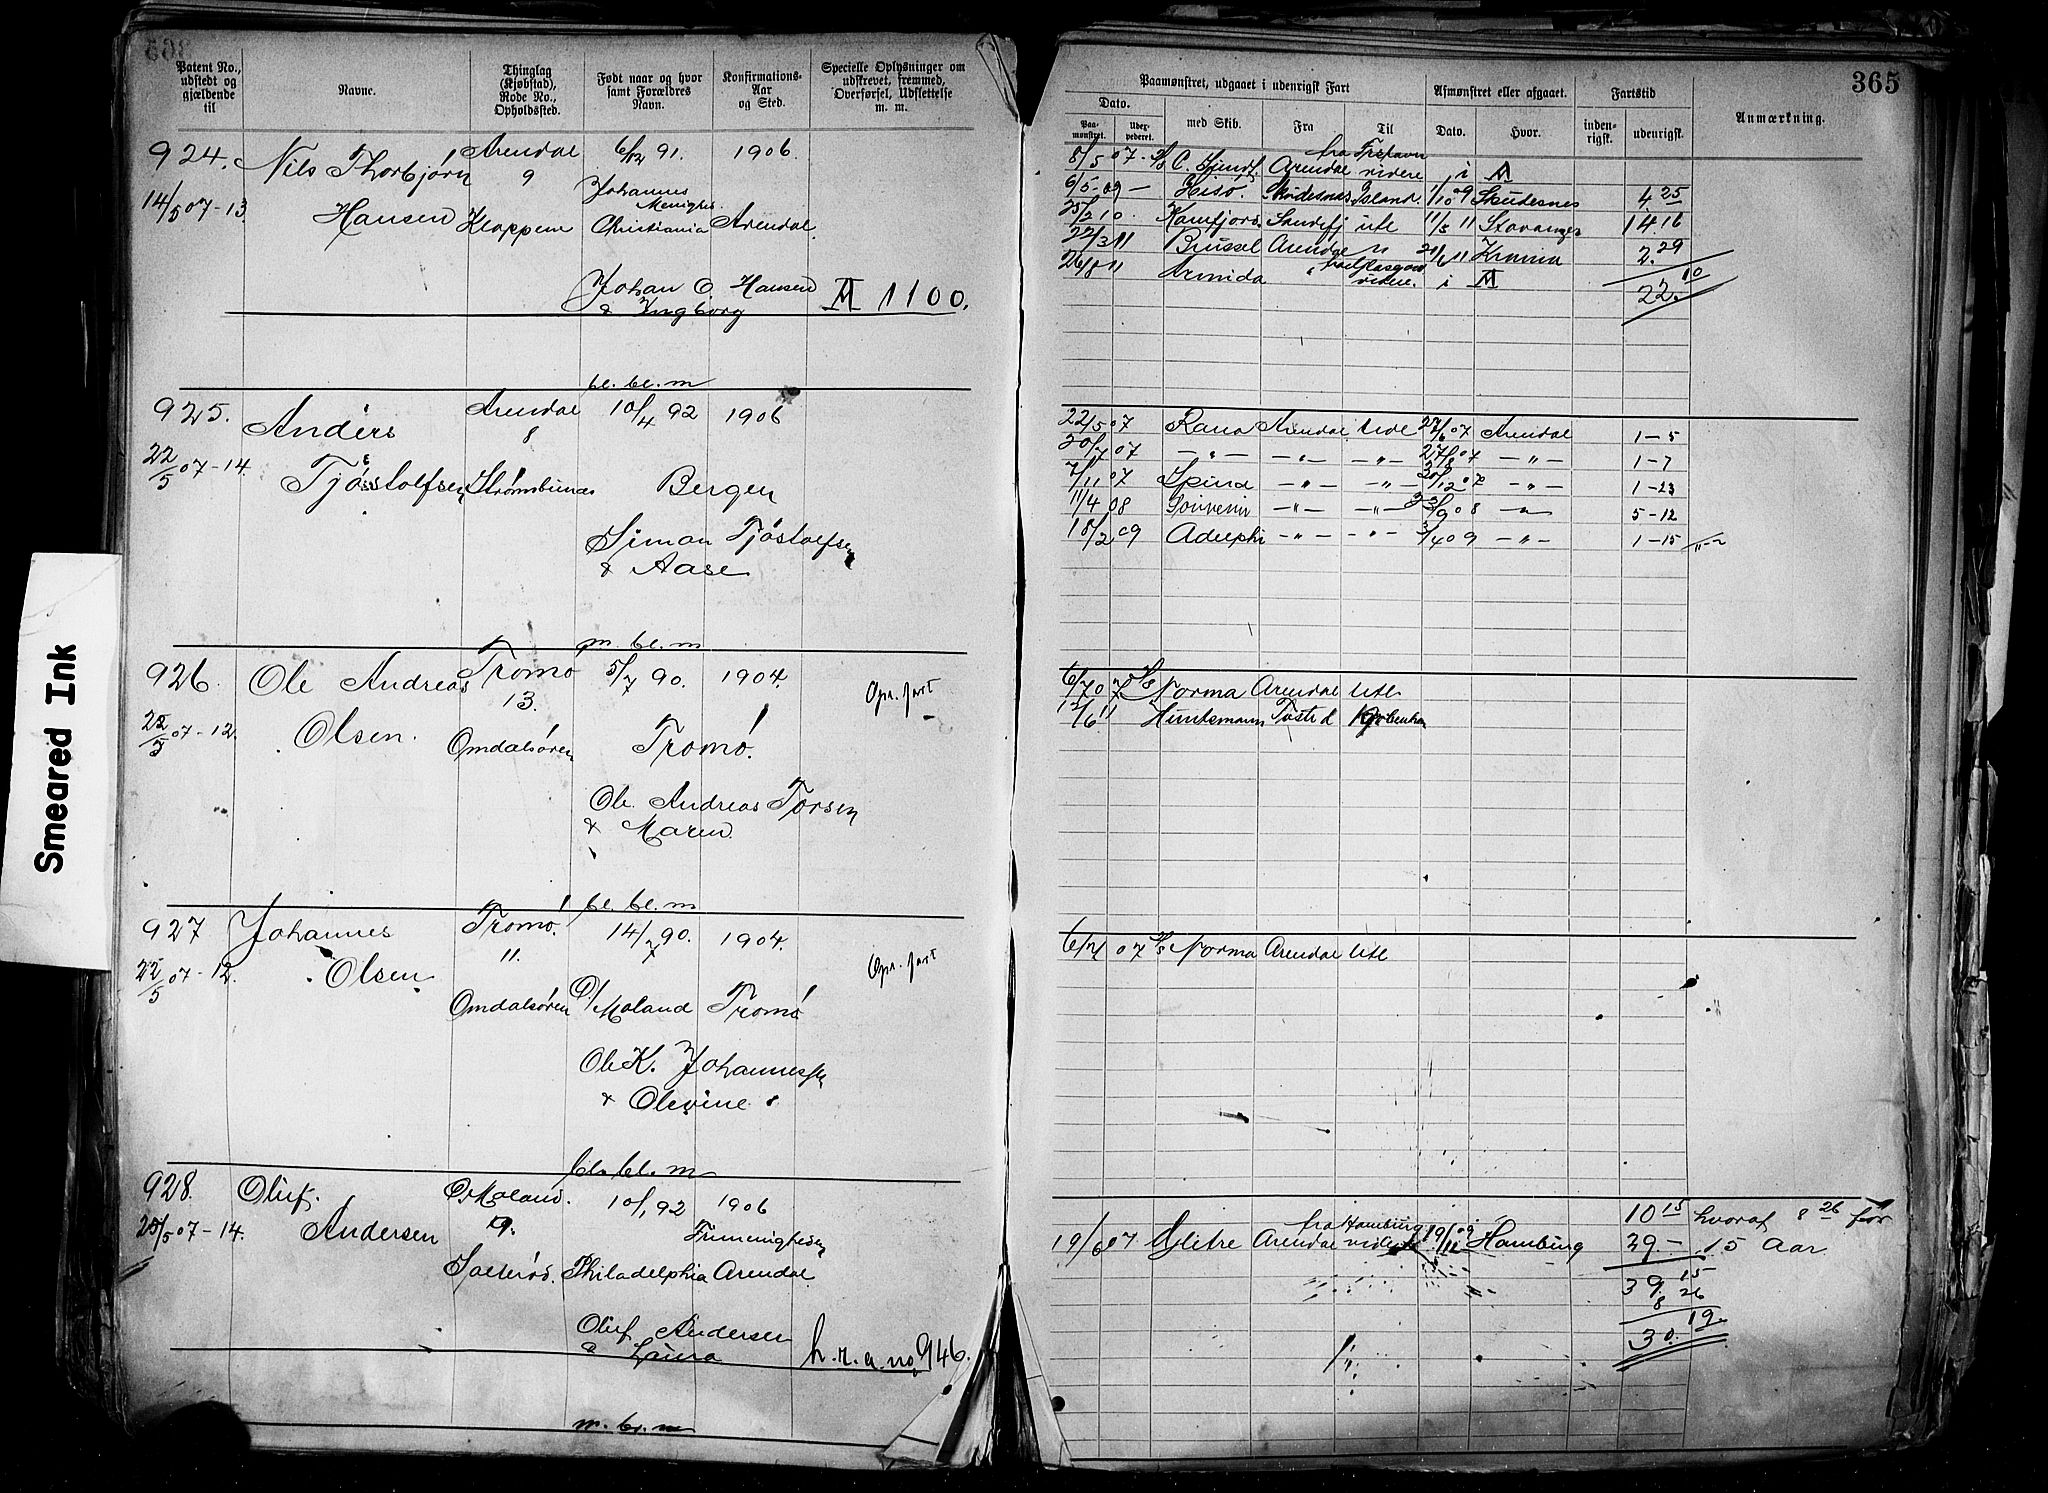 365
Patent No., udstedt og gjældende til
Navne.
Thinglag (Kjøbstad), Rode No., Opholdssted.
Født naar og hvor samt Forældres Navn.
Konfirmations-Aar og Sted.
Specielle Oplysninger om udskrevet, fremmed, Overførsel, Udslettelse m. m.
Paamønstret, udgaaet i udenrigsk Fart
Afmønstret eller afgaaet.
Fartstid
Anmærkning.
Dato.
Paa-mønstret.
med Skib.
Fra
Til
Dato.
Hvor.
inden-rigsk.
udenrigsk.
924. Nils Thorbjørn Arendal 6/12 91. 1906.
9
14/5 07-13. Hansen Kloppene
Johannes Menighed
Christiania Arendal.
Johan O Hansen
& Ingborg
M 1100.
8/5 07. Arendal videre i M
6/5 09 — Hisø Skudesnes Island 1/10 09 Skudesnes 4.25
25/2 10. Sandefj ute 11/3 11 Stavanger 14.16
22/3 11 Brussel Arendal 2.29
26/8 11 Armida fra Glasgow videre. i M 22.10
bl. bl. m
925. Anders Arendal 10/4 92 1906
8
22/5 07-14. Tjøstolfsen Strømsbunes Bergen
Simon Tjøstolfsen
& Aase
22/5 07 Rana Arendal ude 27/6 07 Arendal 1-5
20/7 07 —"— —"— —"— 27/8 07 —"— 1-7
7/11 07 —"— —"— 30/12 07 —"— 1-23
11/4 08 Souvenir —"— —"— 23/9 08 —"— 5-12
18/2 09 Adelphi —"— —"— 3/4 09 —"— 1-15
m. bl. m
926. Ole Andreas Tromø 5/7 90. 1904.
13.
Opr. fart
22/5 07-12. Olsen. Omdalsøren Tromø.
Ole Andreas Torsen
& Maren.
6/7 07 S/s Norma Arendal ute
12/6 11 Huntsmann Tøsted Kjøbenhavn
bl. bl. m
927 Johannes Tromø. 14/7 90. 1904.
11.
Opr. fart
22/5 07-12. Olsen Omdalsøren Ø/Moland Tromø
Ole K. Johannessen
& Olevine
6/7 07 S/s Norma Arendal ute
bl. bl. m
928. Oluf Ø Moland. 10/1 92 1906
9.
25/5 07-14. Andersen Frimenigheden
Salterød. Philadelphia Arendal
Oluf Andersen
& Laura
h. r. a. no 946.
10 15 hvoraf 8 26 før
19/6 07 Glitre Arendal fra Hamburg videre Hamburg 29.— 15 Aar
39 15
8 26
30. 19
m. bl. m
Smeared Ink